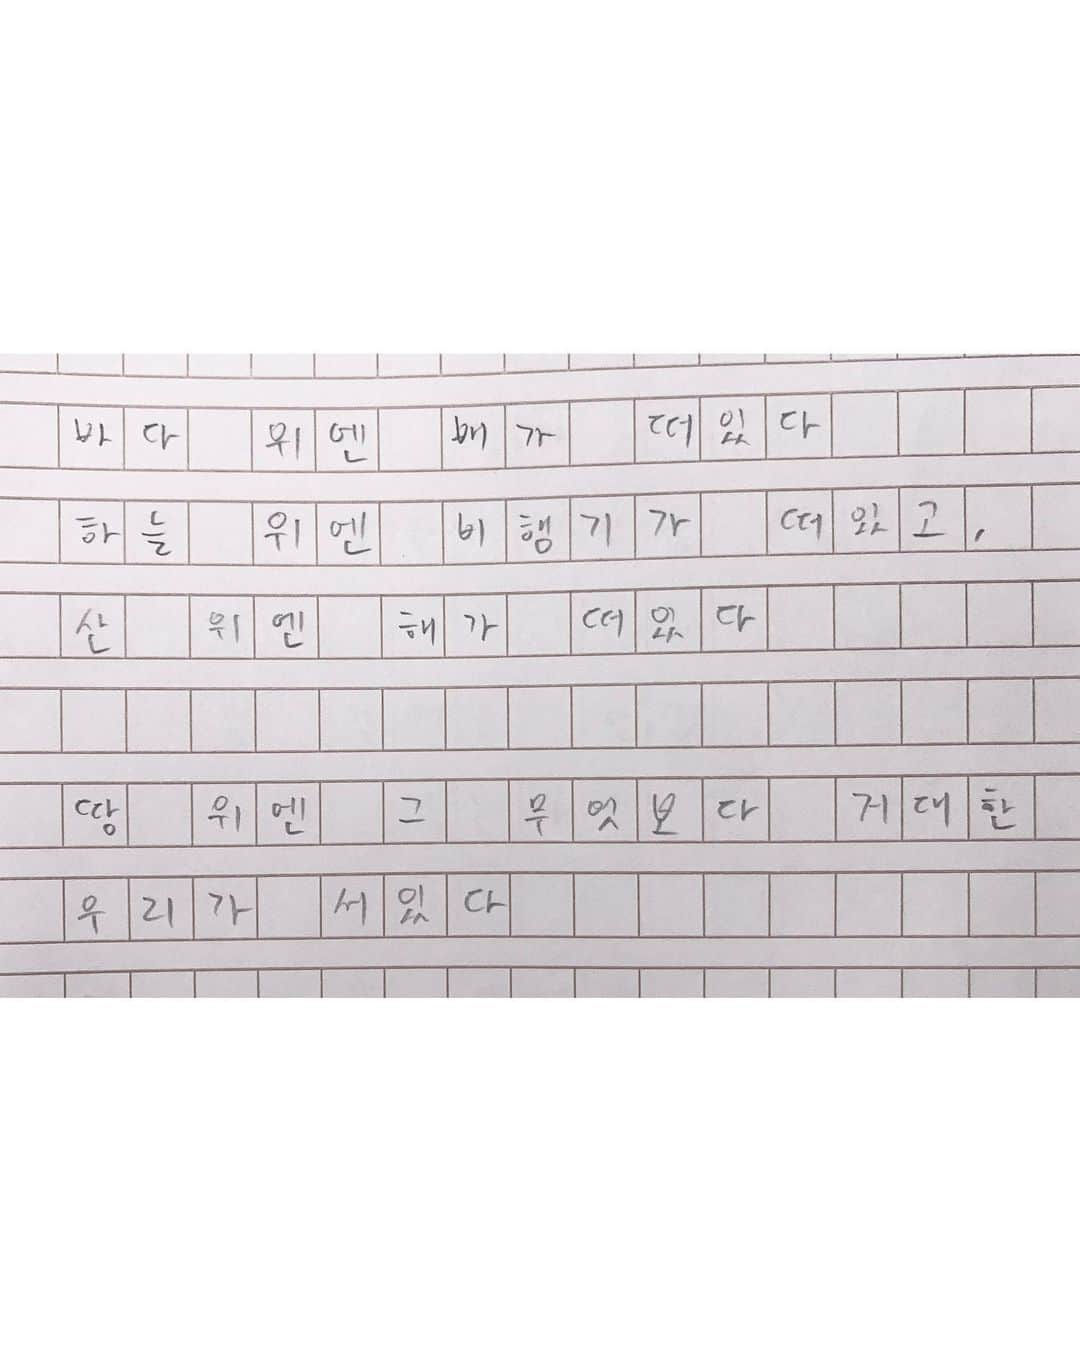 바다 위엔 배가 떠있다
하늘 위엔 비행기가 떠있고,
산 위엔 해가 떠있다
땅 위엔 그 무엇보다 거대한
우리가 서있다